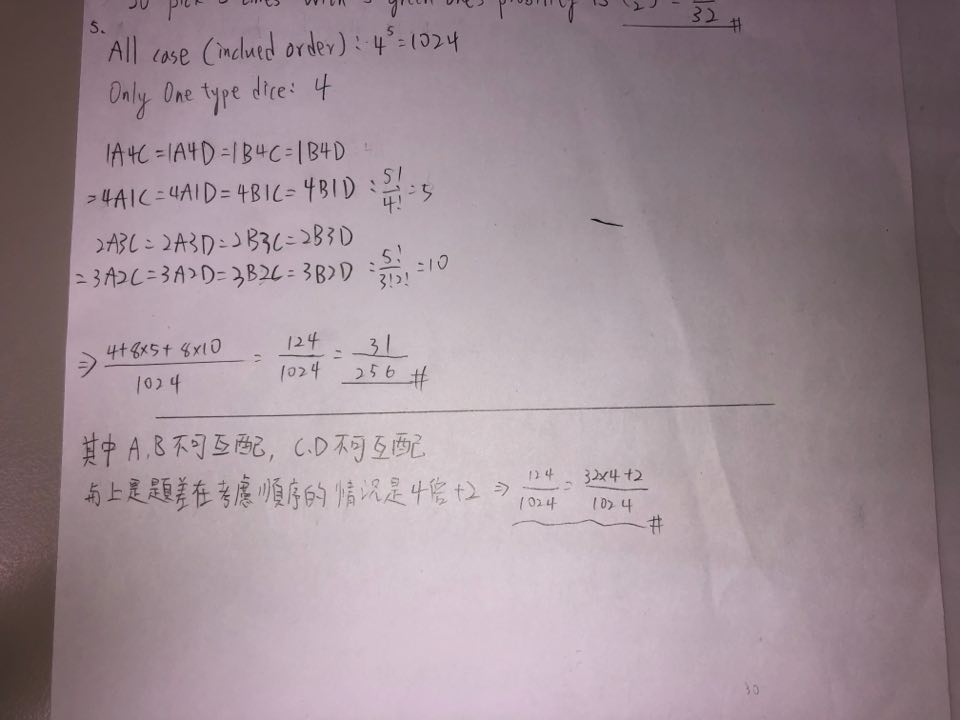 So pick 5 times with 5 green ones is (2) =
32 #
5.
All case (inclued order) : 4⁵=1024
Only One type dice: 4
1A4C=1A4D=1B4C=1B4D
=4A1C=4A1D=4B1C=4B1D : 5!/4! = 5
2A3C=2A3D=2B3C=2B3D
=3A2C=3A2D=3B2C=3B2D : 5!/3!2! = 10
⇒ 4+8×5+8×10/1024 = 124/1024 = 31/256 #
其中 A.B 不可互配, C.D 不可互配
与上是題差在考慮順序的情況是4倍+2 ⇒ 124/1024 = 32×4+2/1024 #
30